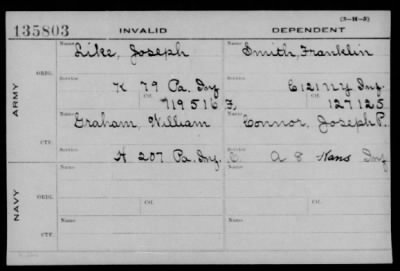 (3-14-3)
135803 INVALID DEPENDENT
ARMY
ORIG.
Name Like, Joseph Name Smith, Franklin
Service K 79 Pa. Inf Service C 121 NY Inf.
Ctf. 719516 Ctf. 127125
CTF.
Name Graham, William Name Connor, Joseph P.
Service A 207 Pa. Inf. C. A 8 Kans Inf
NAVY
ORIG.
Name Name
Service Ctf. Service Ctf.
CTF.
Name Name
Service